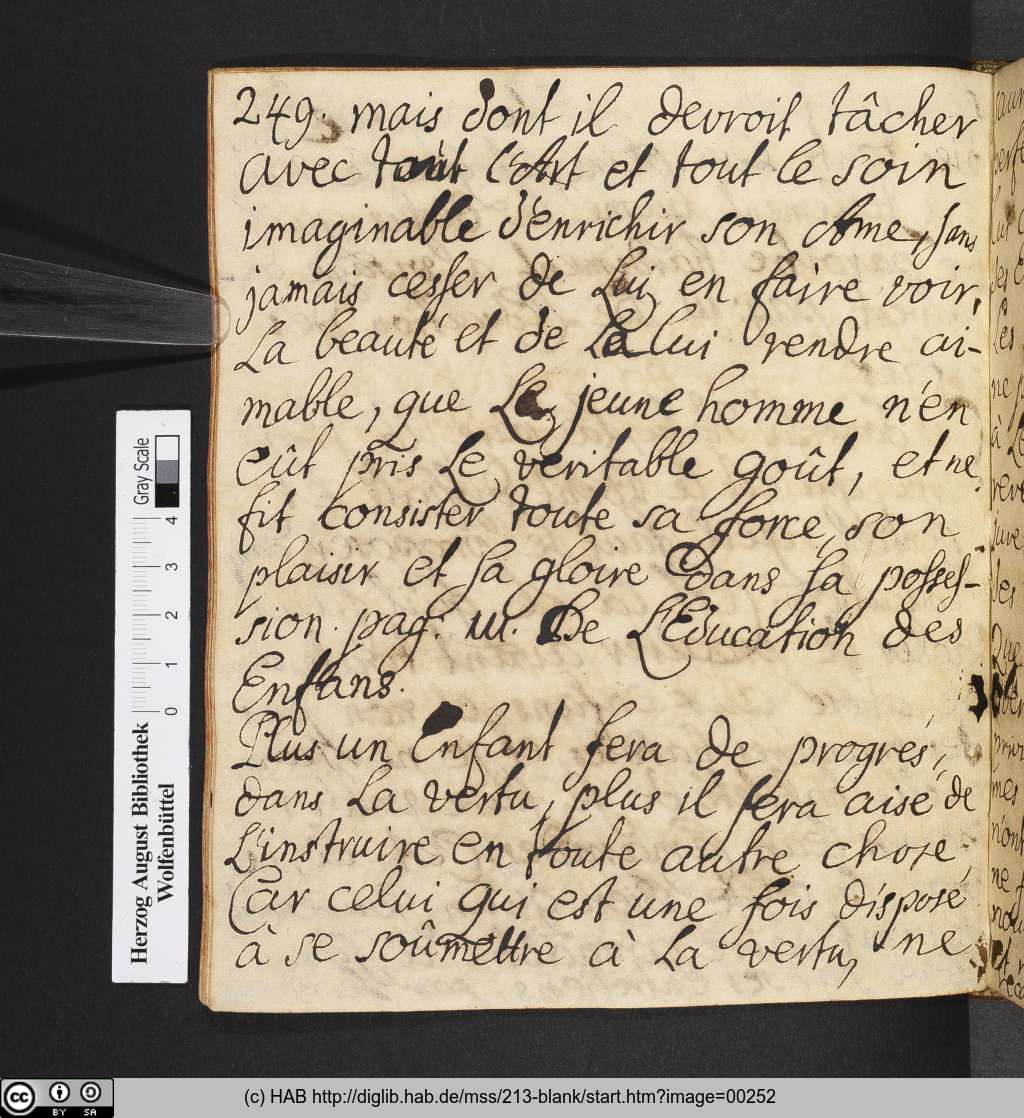 249. mais dont il devroit tâcher
avec tout l'Art et tout le soin
imaginable d'enrichir son Ame, sans
jamais cesser de Lui en faire voir,
La beauté et de Le lui rendre ai-
mable, que Le jeune homme n'en
eût pris Le veritable goût, et ne
fit consister toute sa force, son
plaisir et sa gloire dans sa posses-
sion. pag: 111. De L'Education des
Enfans.
Plus un Enfant fera de progrés,
dans La vertu, plus il sera aisé de
L'instruire en toute autre chose,
Car celui qui est une fois disposé
à se soûmettre à La vertu, ne
Herzog August Bibliothek
Wolfenbüttel
Gray Scale
0 1 2 3 4
(c) HAB http://diglib.hab.de/mss/213-blank/start.htm?image=00252
cc BY SA